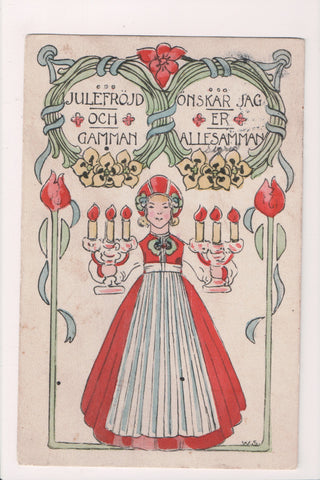 JULEFRÖJD
OCH
GAMMAN
ÖNSKAR JAG
ER
ALLESAMMAN
W.S.